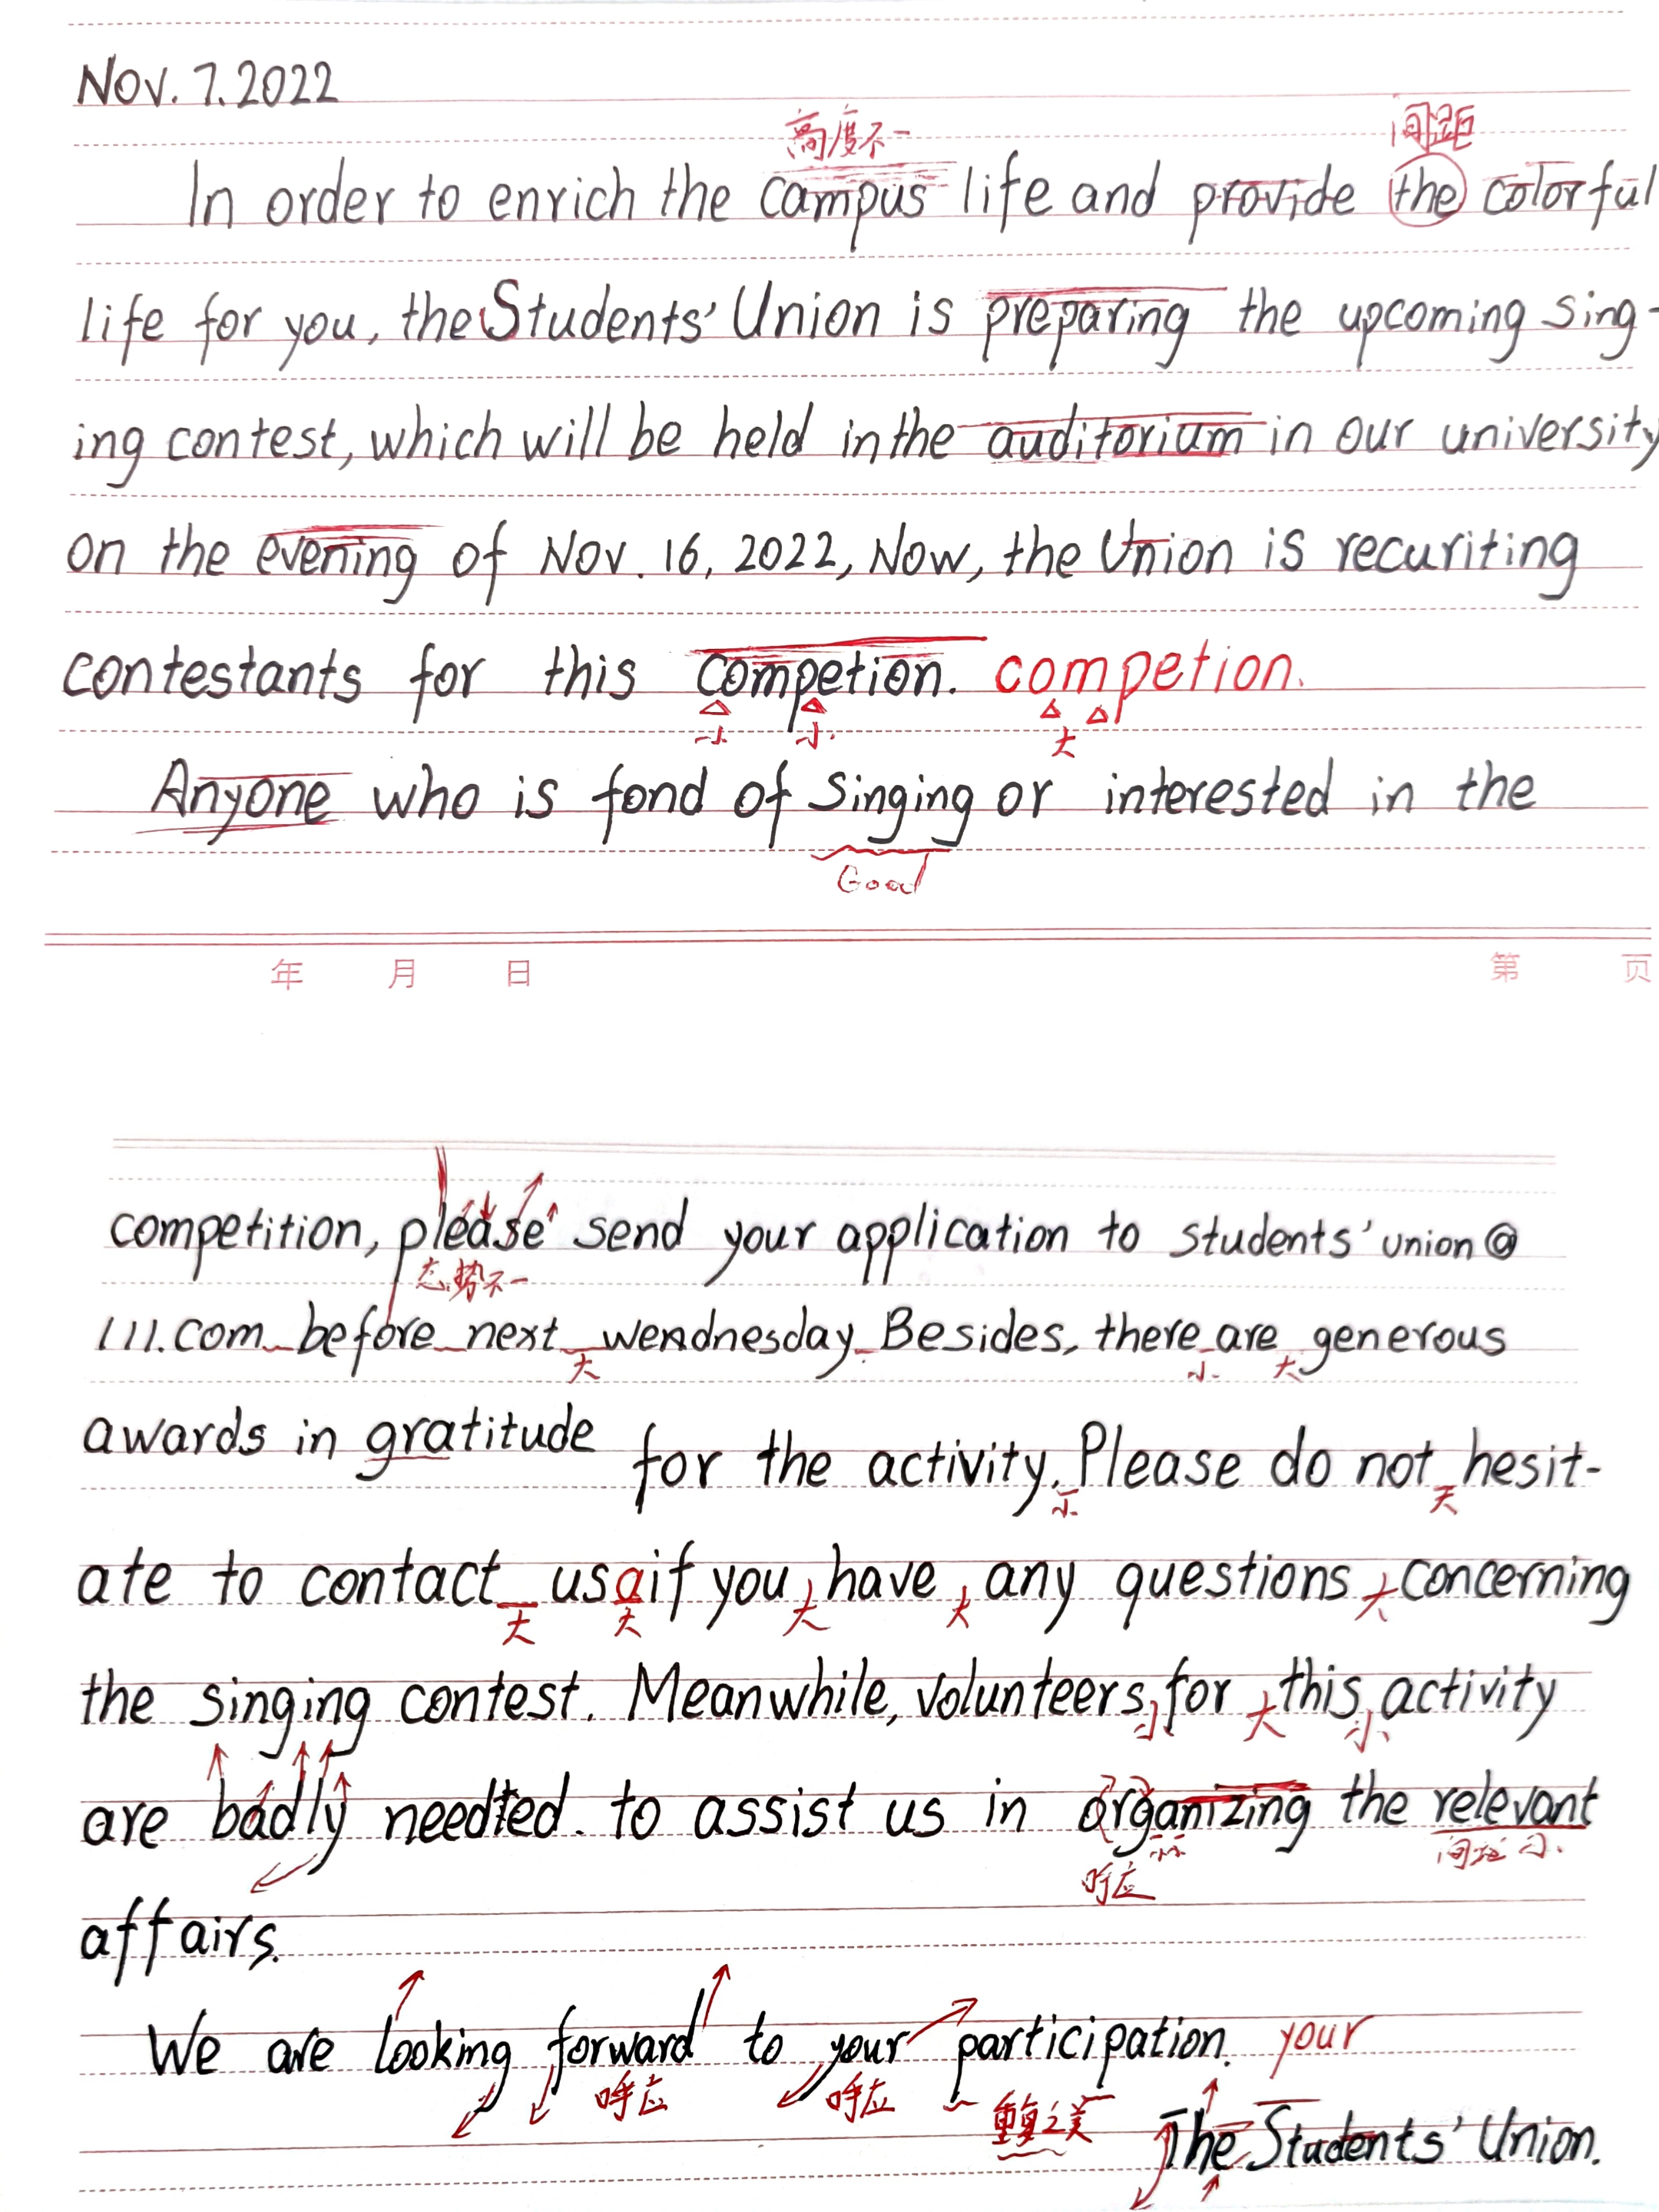 Nov. 7. 2022
高度不一 间距
In order to enrich the campus life and provide the colorful
life for you, the Students' Union is preparing the upcoming sing-
ing contest, which will be held in the auditorium in our university
on the evening of Nov. 16, 2022, Now, the Union is recuriting
contestants for this competion. competion.
小 小 大
Anyone who is fond of singing or interested in the
Good
年 月 日 第 页
competition, please send your application to students' union@
态势不一
111.com before next wendnesday. Besides, there are generous
大 小 大
awards in gratitude for the activity. Please do not hesit-
小 大
ate to contact us if you have any questions concerning
大 大 大 大 大
the singing contest. Meanwhile, volunteers for this activity
小 大 小
are badly needted. to assist us in organizing the relevant
小小 间距小
呼应
affairs.
We are looking forward to your participation. your
呼应 呼应 重复之美
The Students' Union.